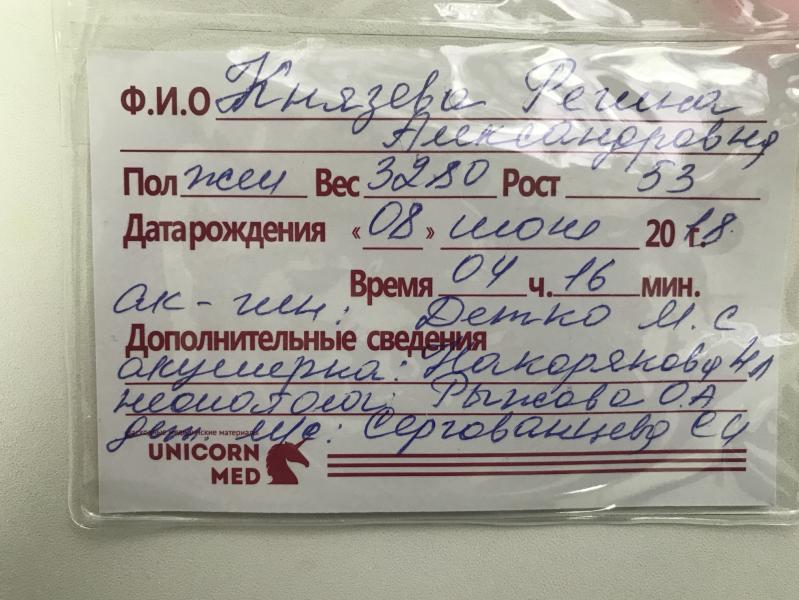 Ф.И.О Князева Регина
Александровна
Пол жен Вес 3280 Рост 53
Дата рождения «08» июня 2018 г.
Время 04 ч. 16 мин.
ак-гин: Детко М.С
Дополнительные сведения
акушерка: Накорякова Н Л
неонатолог: Рыжова О.А
дет. м/с: Сергованцева С И
расходные медицинские материалы
UNICORN
MED